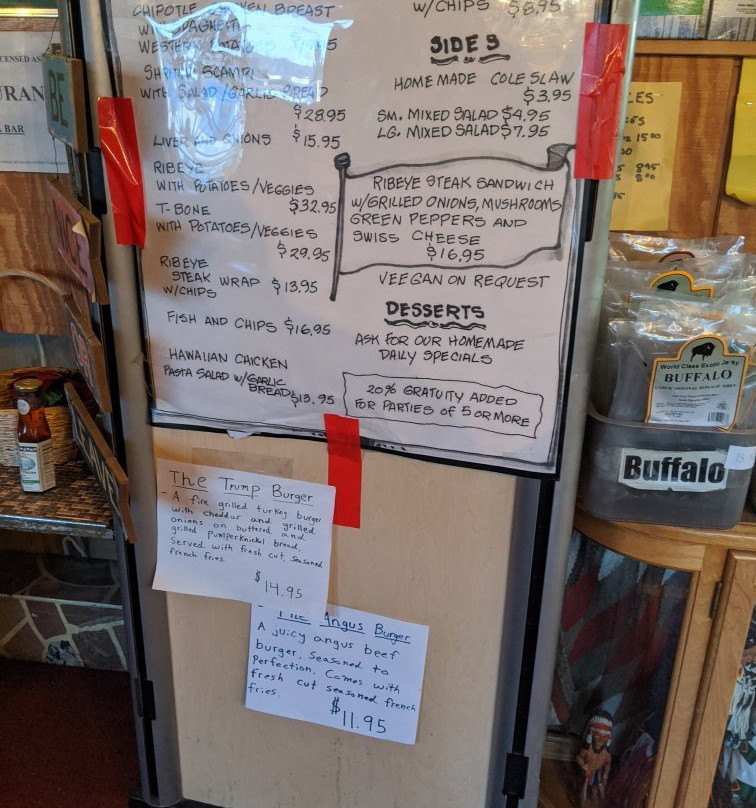 CHIPOTLE BREAST
WESTERN
SCAMPI
WITH SALAD/GARLIC BREAD
$28.95
LIVER AND ONIONS $15.95
RIBEYE
WITH POTATOES/VEGGIES
$32.95
T-BONE
WITH POTATOES/VEGGIES
$29.95
RIBEYE
STEAK WRAP $13.95
W/CHIPS
FISH AND CHIPS $16.95
HAWAIIAN CHICKEN
PASTA SALAD W/GARLIC
BREAD $13.95
W/CHIPS $8.95
SIDES
HOMEMADE COLE SLAW
$3.95
SM. MIXED SALAD $4.95
LG. MIXED SALAD $7.95
RIBEYE STEAK SANDWICH
W/GRILLED ONIONS, MUSHROOMS
GREEN PEPPERS AND
SWISS CHEESE
$16.95
VEEGAN ON REQUEST
DESSERTS
ASK FOR OUR HOMEMADE
DAILY SPECIALS
20% GRATUITY ADDED
FOR PARTIES OF 5 OR MORE
The Trump Burger
- A fire grilled turkey burger
with cheddar and grilled
onions on buttered and
grilled pumperknickel bread.
Served with fresh cut, seasoned
french fries.
$14.95
The Angus Burger
A juicy angus beef
burger. Seasoned to
Perfection. Comes with
fresh cut seasoned french
fries.
$11.95
BAR
BE
World Class Exotic Jerky
BUFFALO
Buffalo